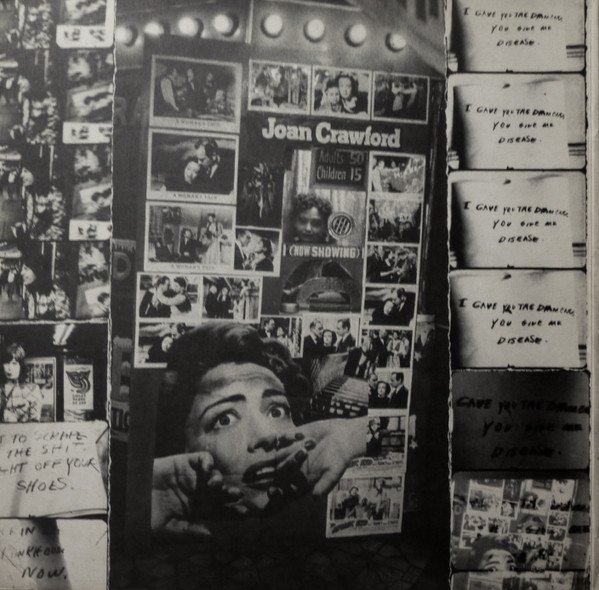 Joan Crawford
Adults 50
Children 15
(NOW SHOWING)
A WOMAN'S FACE
A WOMAN'S FACE
A WOMAN'S FACE
TO SCRAPE
THE SHIT
RIGHT OFF YOUR
SHOES.
IN
NOW.
I GAVE YOU THE DIAMONDS
YOU GIVE ME
DISEASE.
I GAVE YOU THE DIAMONDS
YOU GIVE ME
DISEASE.
I GAVE YOU THE DIAMONDS
YOU GIVE ME
DISEASE.
I GAVE YOU THE DIAMONDS
YOU GIVE ME
DISEASE.
GAVE YOU THE DIAMONDS
YOU GIVE ME
DISEASE.